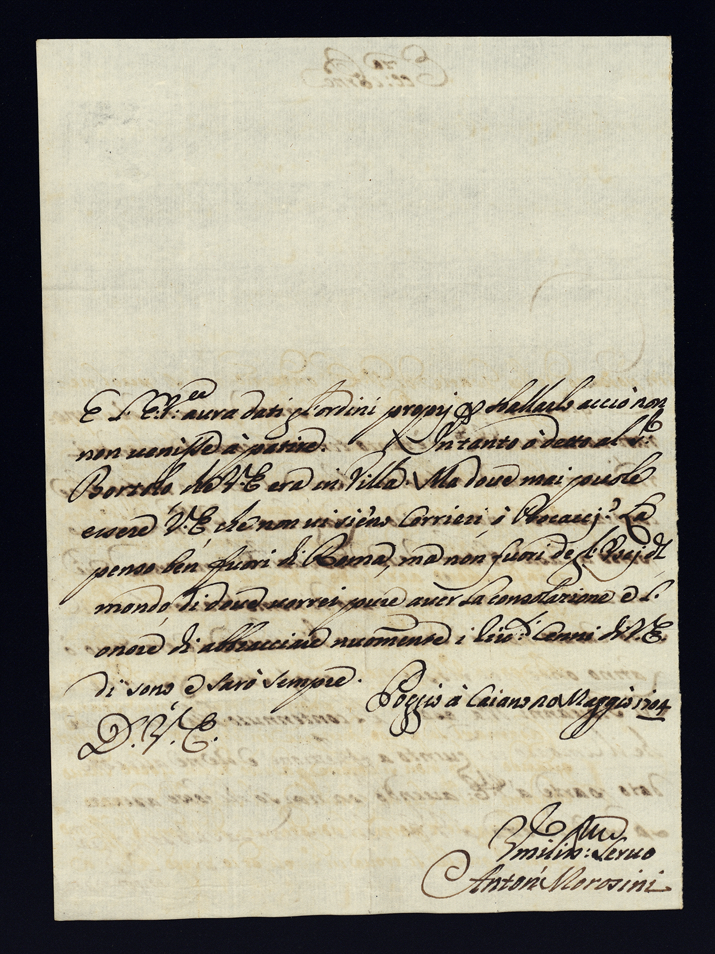 E l. E.V.ra aura dati gl'ordini proprj acciò non
non uenisse à patire. Intanto ò detto al S.r
Bortolo che V.E era in Villa. Ma doue mai puole
essere V.E che non ui sieno Corrieri, ò Procacj? La
penso ben fuori di Roma, ma non fuori del
mondo, di doue uorrei pure auer la consolazione e l'
onore di abbracciare nuouamente i Cenni di V.E.
di sono e sarò sempre.
Poggio à Caiano 20 Maggio 1704
D. V. E.
Vmiliss: Seruo
Anton Morosini